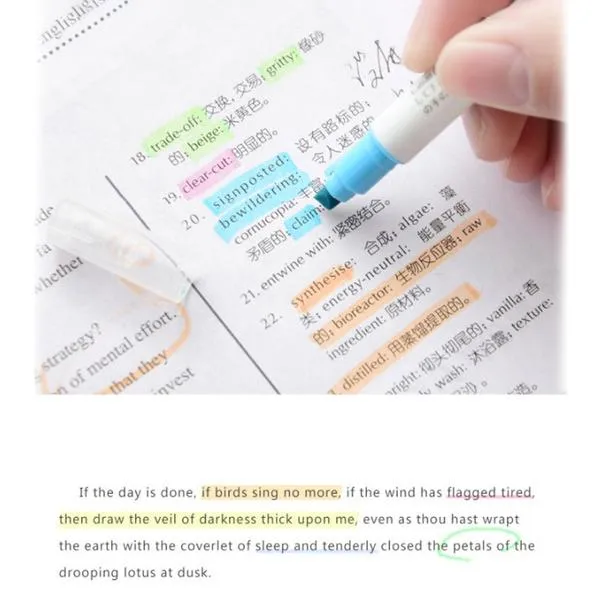 englishlighs
gritty: 橡砂
18. trade-off: 交换, 交易;
的; beige: 米黄色。
19. clear-cut: 明显的。
20. signposted: 设有路标的;
bewildering: 令人迷惑的
cornucopia: 丰富
矛盾的; claim
21. entwine with: 紧密结合。
synthesise: 合成; algae: 藻
类; energy-neutral: 能量平衡
22. 的; bioreactor: 生物反应器; raw
ingredient: 原材料。
distilled: 用蒸馏提取的。
vanilla: 香
right: 彻头彻尾的;
wash: 沐浴露; texture:
whether
strategy?
n of mental effort.
that they
invest
If the day is done, if birds sing no more, if the wind has flagged tired,
then draw the veil of darkness thick upon me, even as thou hast wrapt
the earth with the coverlet of sleep and tenderly closed the petals of the
drooping lotus at dusk.